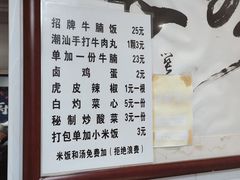 招牌牛腩饭 25元
潮汕手打牛肉丸 1颗3元
单加一份牛腩 23元
卤鸡蛋 2元
虎皮辣椒 1元一根
白灼菜心 5元一份
秘制炒酸菜 3元一份
打包单加小米饭 3元
米饭和汤免费加（拒绝浪费）